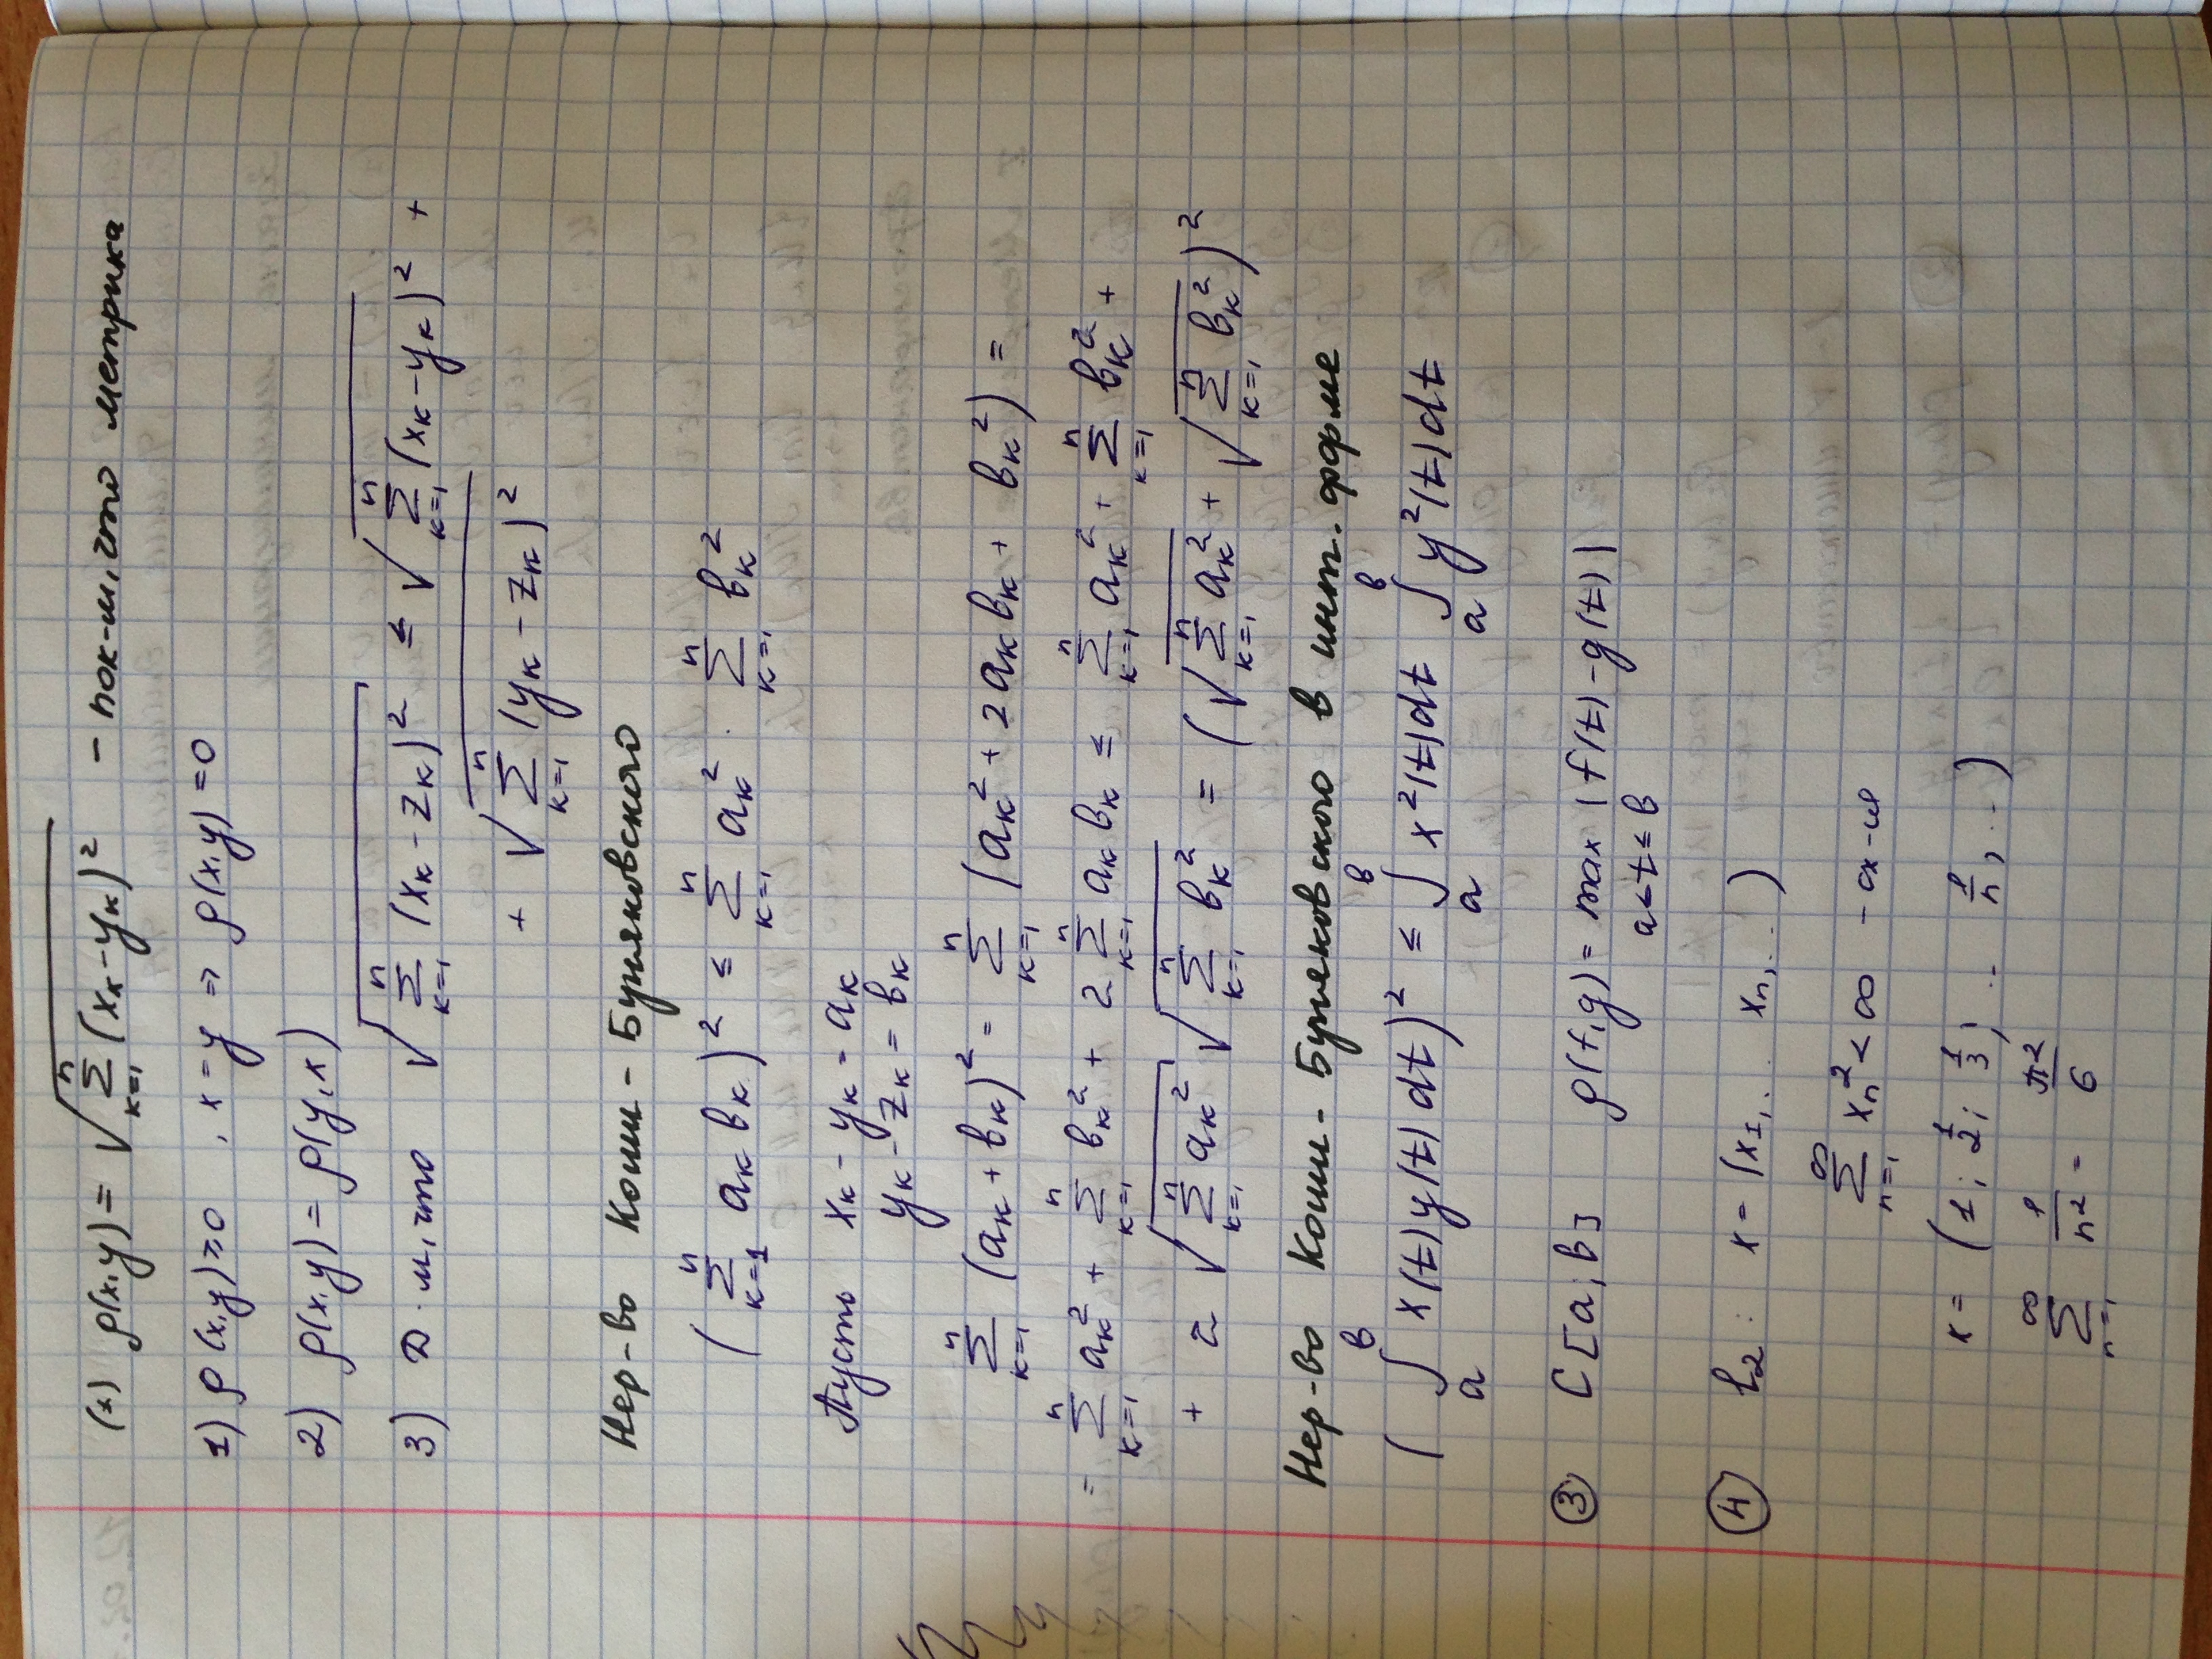 (*) ρ(x,y) = √(∑_{k=1}^{n} (x_k - y_k)²) - пок-м, что метрика
1) ρ(x,y) ≥ 0 , x = y => ρ(x,y) = 0
2) ρ(x,y) = ρ(y,x)
3) D-м, что √(∑_{k=1}^{n} (x_k - z_k)²) ≤ √(∑_{k=1}^{n} (x_k - y_k)²) +
+ √(∑_{k=1}^{n} (y_k - z_k)²)
Нер-во Коши - Буняковского
(∑_{k=1}^{n} a_k b_k)² ≤ ∑_{k=1}^{n} a_k² · ∑_{k=1}^{n} b_k²
Пусть x_k - y_k = a_k
y_k - z_k = b_k
∑_{k=1}^{n} (a_k + b_k)² = ∑_{k=1}^{n} (a_k² + 2a_k b_k + b_k²) =
= ∑_{k=1}^{n} a_k² + ∑_{k=1}^{n} b_k² + 2 ∑_{k=1}^{n} a_k b_k ≤ ∑_{k=1}^{n} a_k² + ∑_{k=1}^{n} b_k² +
+ 2 √(∑_{k=1}^{n} a_k²) √(∑_{k=1}^{n} b_k²) = (√(∑_{k=1}^{n} a_k²) + √(∑_{k=1}^{n} b_k²))²
Нер-во Коши - Буняковского в инт. форме
(∫_a^b x(t) y(t) dt)² ≤ ∫_a^b x²(t) dt ∫_a^b y²(t) dt
③ C [a; b] ρ(f,g) = max |f(t) - g(t)|
a ≤ t ≤ b
④ l₂: x = (x₁, .. xₙ, .. )
∑_{n=1}^{∞} xₙ² < ∞ - сх-ся
x = (1; 1/2; 1/3; .. 1/n, .. )
∑_{n=1}^{∞} 1/n² = π²/6